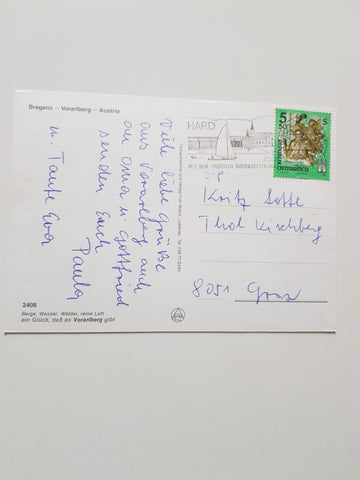 Bregenz – Vorarlberg – Austria
Viele liebe Grüße
aus Vorarlberg auch
an Oma u. Gottfried
senden Euch
Paula
u. Tante Eva
HARD
5
50
S
ÖSTERREICH
Fritz
Thal Kirchberg
8051 Graz
2408
Berge, Wasser, Wälder, reine Luft
ein Glück, daß es Vorarlberg gibt